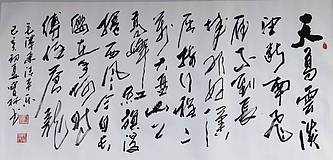 天高雲淡
望斷南飛
雁不到長
城非好漢
屈指行程二
萬六盤山上
高峰紅旗漫
捲西風今日長
纓在手何時
縛住蒼龍
毛澤東清平樂
己亥初夏